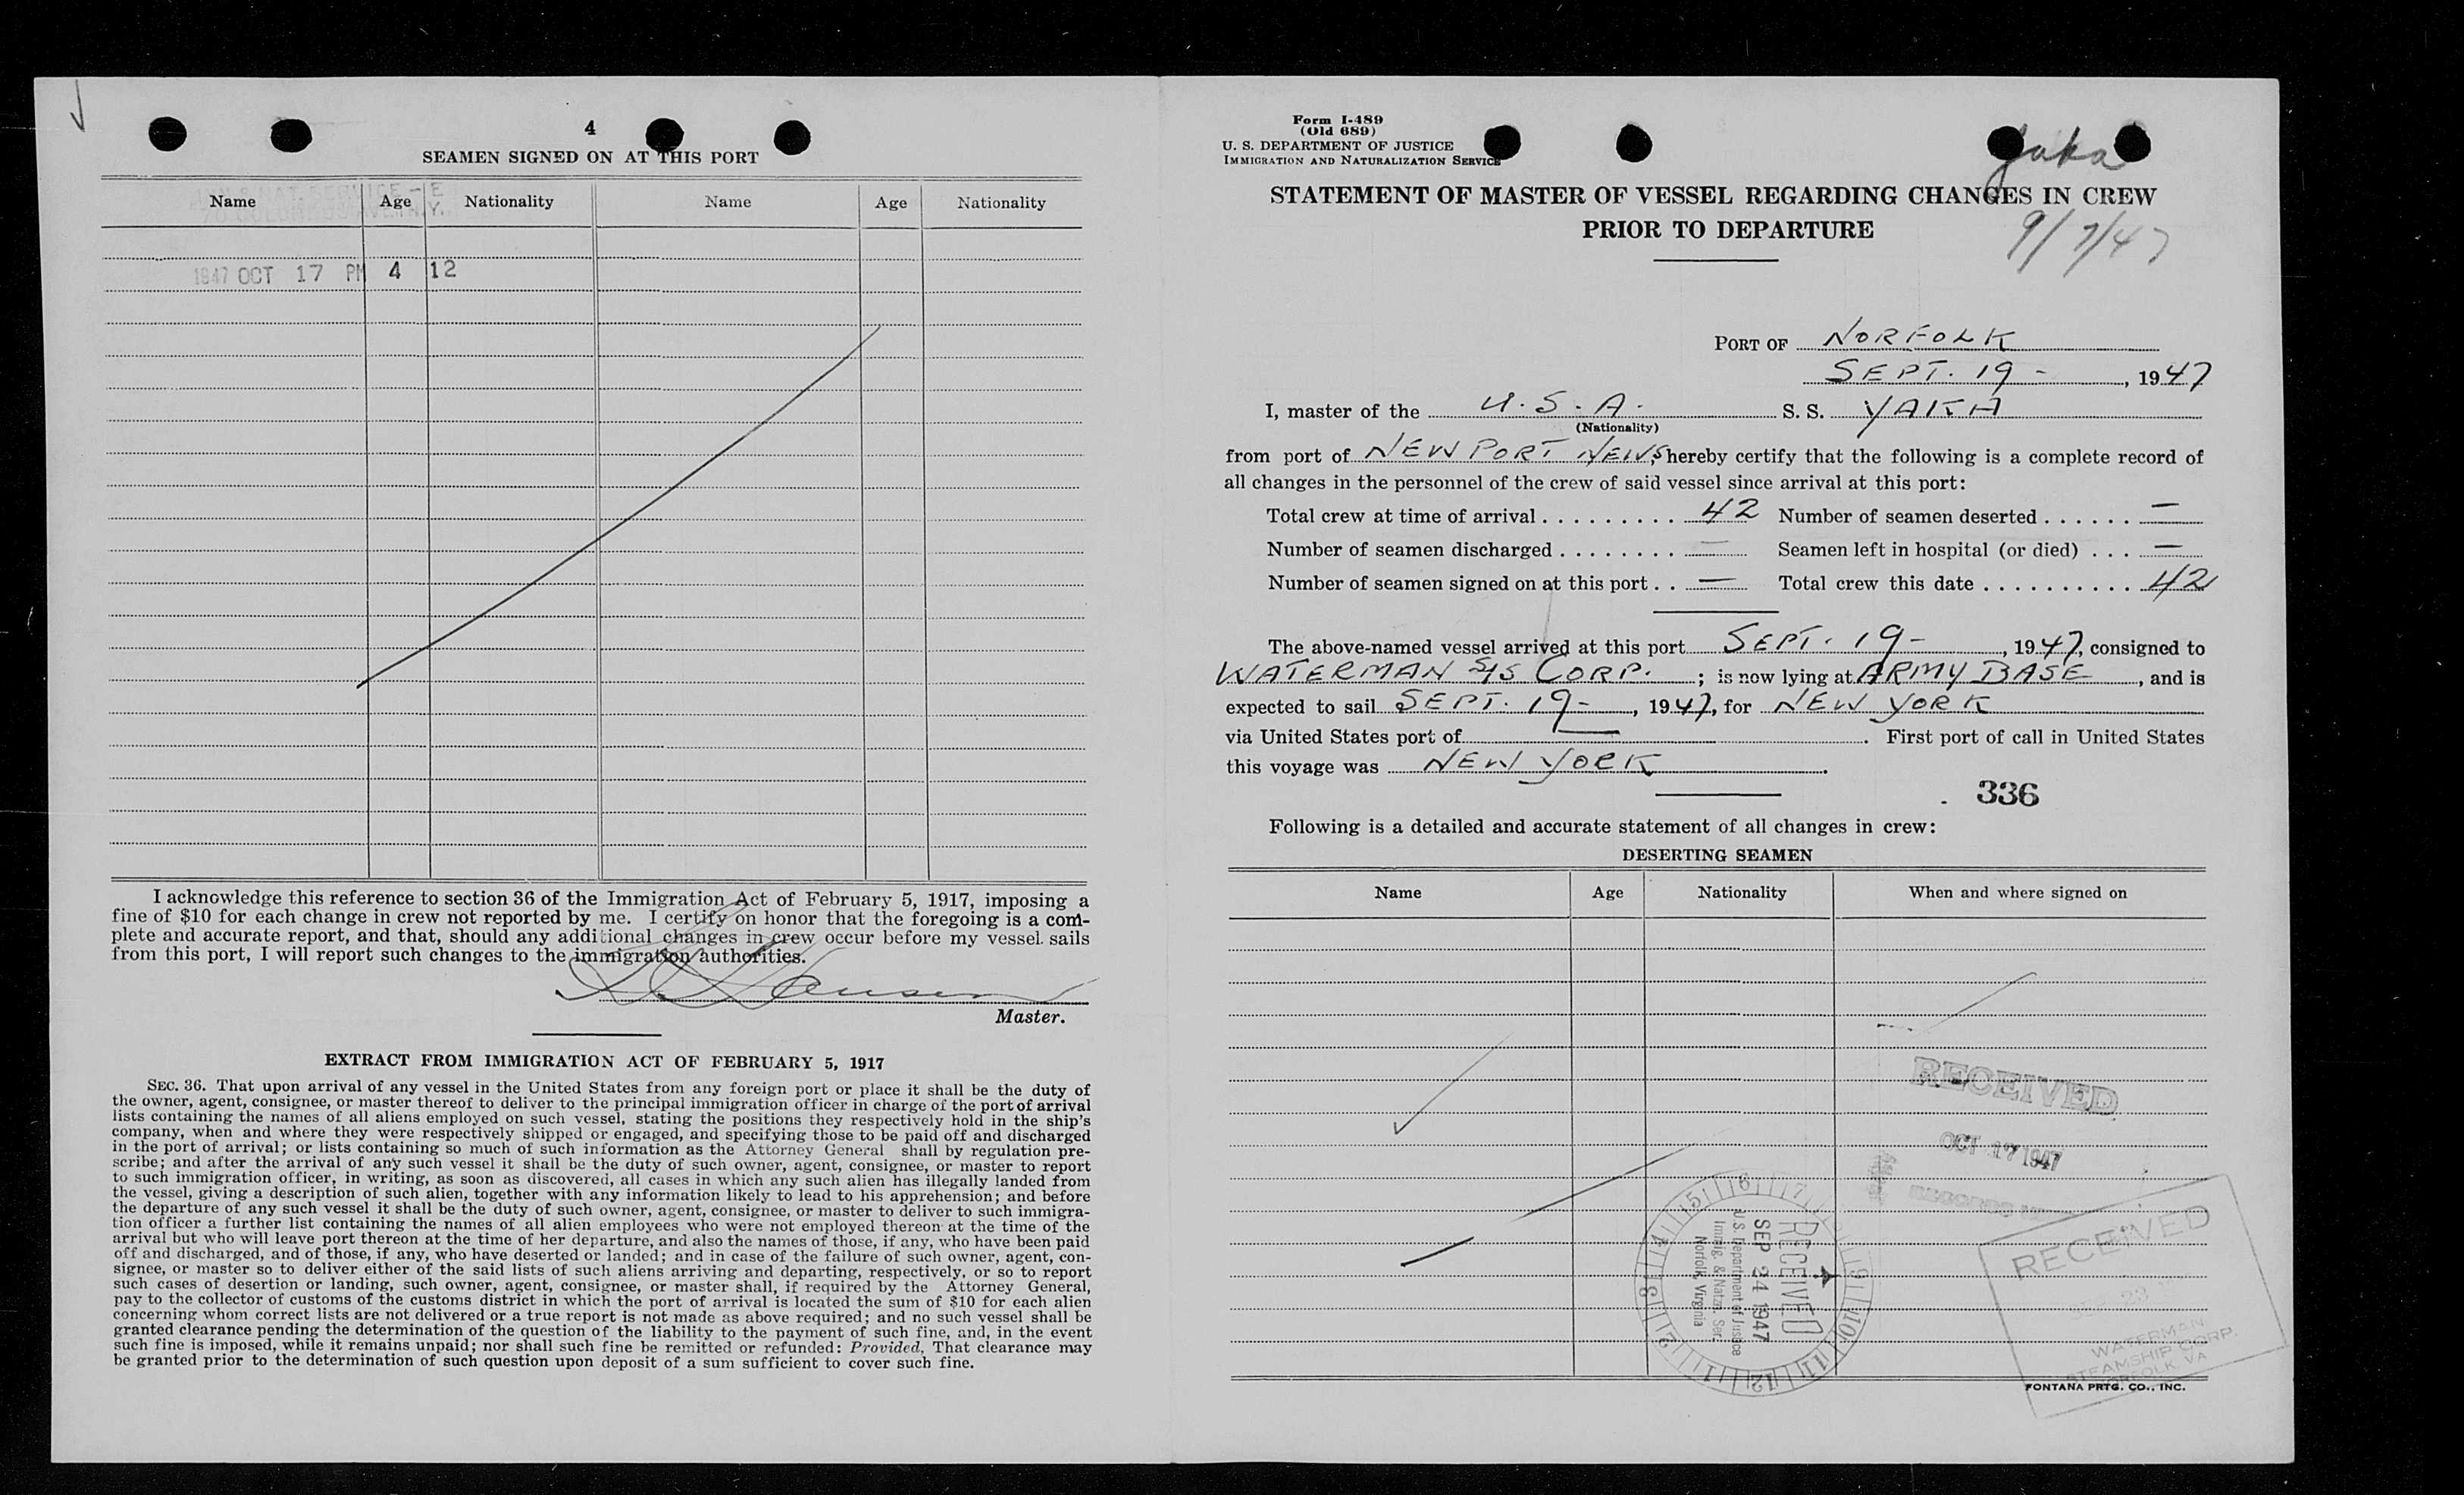 4
SEAMEN SIGNED ON AT THIS PORT
Name Age Nationality Name Age Nationality
1947 OCT 17 PM 4 12
I acknowledge this reference to section 36 of the Immigration Act of February 5, 1917, imposing a
fine of $10 for each change in crew not reported by me. I certify on honor that the foregoing is a com-
plete and accurate report, and that, should any additional changes in crew occur before my vessel sails
from this port, I will report such changes to the immigration authorities.
Master.
EXTRACT FROM IMMIGRATION ACT OF FEBRUARY 5, 1917
SEC. 36. That upon arrival of any vessel in the United States from any foreign port or place it shall be the duty of
the owner, agent, consignee, or master thereof to deliver to the principal immigration officer in charge of the port of arrival
lists containing the names of all aliens employed on such vessel, stating the positions they respectively hold in the ship's
company, when and where they were respectively shipped or engaged, and specifying those to be paid off and discharged
in the port of arrival; or lists containing so much of such information as the Attorney General shall by regulation pre-
scribe; and after the arrival of any such vessel it shall be the duty of such owner, agent, consignee, or master to report
to such immigration officer, in writing, as soon as discovered, all cases in which any such alien has illegally landed from
the vessel, giving a description of such alien, together with any information likely to lead to his apprehension; and before
the departure of any such vessel it shall be the duty of such owner, agent, consignee, or master to deliver to such immigra-
tion officer a further list containing the names of all alien employees who were not employed thereon at the time of the
arrival but who will leave port thereon at the time of her departure, and also the names of those, if any, who have been paid
off and discharged, and of those, if any, who have deserted or landed; and in case of the failure of such owner, agent, con-
signee, or master so to deliver either of the said lists of such aliens arriving and departing, respectively, or so to report
such cases of desertion or landing, such owner, agent, consignee, or master shall, if required by the Attorney General,
pay to the collector of customs of the customs district in which the port of arrival is located the sum of $10 for each alien
concerning whom correct lists are not delivered or a true report is not made as above required; and no such vessel shall be
granted clearance pending the determination of the question of the liability to the payment of such fine, and, in the event
such fine is imposed, while it remains unpaid; nor shall such fine be remitted or refunded: Provided, That clearance may
be granted prior to the determination of such question upon deposit of a sum sufficient to cover such fine.
Form I-489
(Old 689)
U. S. DEPARTMENT OF JUSTICE
IMMIGRATION AND NATURALIZATION SERVICE
Yaka
STATEMENT OF MASTER OF VESSEL REGARDING CHANGES IN CREW
PRIOR TO DEPARTURE
9/7/47
PORT OF NORFOLK
SEPT. 19 -, 1947
I, master of the U.S.A. S. S. YAKA
(Nationality)
from port of NEWPORT NEWS, hereby certify that the following is a complete record of
all changes in the personnel of the crew of said vessel since arrival at this port:
Total crew at time of arrival . . . . . . . . . 42 Number of seamen deserted . . . . . . —
Number of seamen discharged . . . . . . . . — Seamen left in hospital (or died) . . . —
Number of seamen signed on at this port . . — Total crew this date . . . . . . . . . . . 42
The above-named vessel arrived at this port SEPT. 19 -, 1947, consigned to
WATERMAN S/S CORP. ; is now lying at ARMY BASE, and is
expected to sail SEPT. 19 -, 1947, for NEW YORK
via United States port of — . First port of call in United States
this voyage was NEW YORK.
336
Following is a detailed and accurate statement of all changes in crew:
DESERTING SEAMEN
Name Age Nationality When and where signed on
RECEIVED
OCT 17 1947
RECEIVED
SEP 24 1947
U.S. Department of Justice
Immig. & Natz. Ser.
Norfolk, Virginia
RECEIVED
WATERMAN
STEAMSHIP CORP.
NORFOLK, VA
FONTANA PRTG. CO., INC.